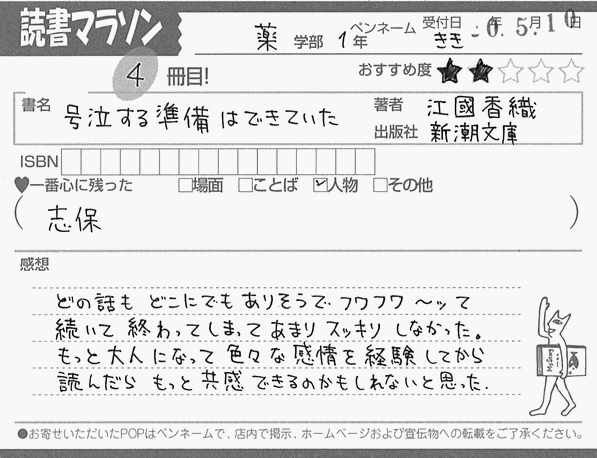 読書マラソン
薬 学部 1年 ペンネーム きき 受付日 -0.年5.月10日
4 冊目! おすすめ度 ★★☆☆☆
書名 号泣する準備はできていた 著者 江國香織
出版社 新潮文庫
ISBN
♥一番心に残った □場面 □ことば ☑人物 □その他
(志保)
感想
どの話も どこにでも ありそうで フワフワ〜ッて
続いて 終わってしまって あまり スッキリ しなかった。
もっと大人になって 色々な 感情を 経験してから
読んだら もっと 共感できるのかもしれないと思った.
●お寄せいただいたPOPはペンネームで、店内で掲示、ホームページおよび宣伝物への転載をご了承ください。